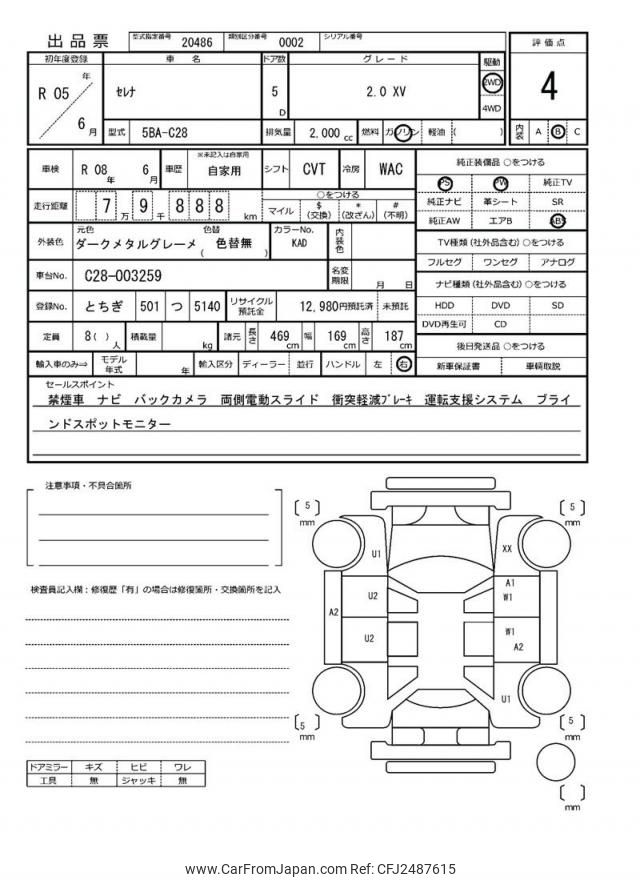 出品票 型式指定番号 20486 類別区分番号 0002 シリアル番号
評価点
4
内装 A B C
初年度登録 車名 ドア数 グレード 駆動
R 05 年 6 月 セレナ 5 D 2.0 XV 2WD 4WD
型式 5BA-C28 排気量 2,000 cc 燃料 ガソリン 軽油 ( )
車検 R 08 年 6 月 車歴 ※未記入は自家用 自家用 シフト CVT 冷房 WAC
走行距離 7 万 9 千 8 8 8 km ○をつける
マイル $ (交換) * (改ざん) # (不明)
外装色 元色 ダークメタルグレーメ 色替 ( 色替無 ) カラーNo. KAD 内装色
車台No. C28-003259 名変期限 月 日
登録No. とちぎ 501 つ 5140 リサイクル預託金 12,980円預託済 未預託
定員 8( ) 人 積載量 kg 諸元 長さ 469 cm 幅 169 cm 高さ 187 cm
輸入車のみ⇒ モデル年式 年 輸入区分 ディーラー 並行 ハンドル 左 右
純正装備品 ○をつける
PS PW 純正TV
純正ナビ 革シート SR
純正AW エアB ABS
TV種類 (社外品含む) ○をつける
フルセグ ワンセグ アナログ
ナビ種類 (社外品含む) ○をつける
HDD DVD SD
DVD再生可 CD
後日発送品 ○をつける
新車保証書 車輌取説
セールスポイント
禁煙車 ナビ バックカメラ 両側電動スライド 衝突軽減ブレーキ 運転支援システム ブライ
ンドスポットモニター
注意事項・不具合箇所
検査員記入欄：修復歴「有」の場合は修復箇所・交換箇所を記入
[ 5 ] mm
[ 5 ] mm
U1 XX
U2 A1
W1
A2
U2 W1
A2
U1
[ 5 ] mm
[ 5 ] mm
[ ] mm
ドアミラー キズ ヒビ ワレ
工具 無 ジャッキ 無
www.CarFromJapan.com Ref: CFJ2487615